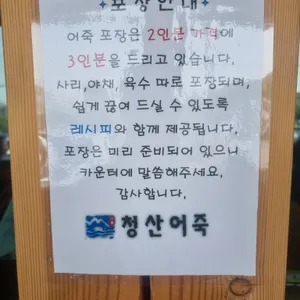 포장안내
어죽 포장은 2인분 가격에
3인분을 드리고 있습니다.
사리,야채, 육수 따로 포장되며,
쉽게 끓여 드실 수 있도록
레시피와 함께 제공됩니다.
포장은 미리 준비되어 있으니
카운터에 말씀해주세요.
감사합니다.
청산어죽